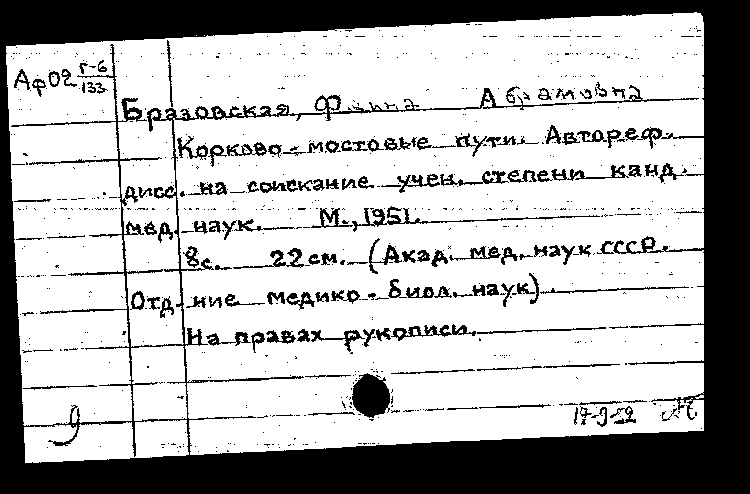 Аф02 г-6/133
Бразовская, Фаина Абрамовна
Корково-мостовые пути. Автореф.
дисс. на соискание учен. степени канд.
мед. наук. М., 1951.
8с. 22 см. (Акад. мед. наук СССР.
Отд-ние медико-биол. наук).
На правах рукописи.
9